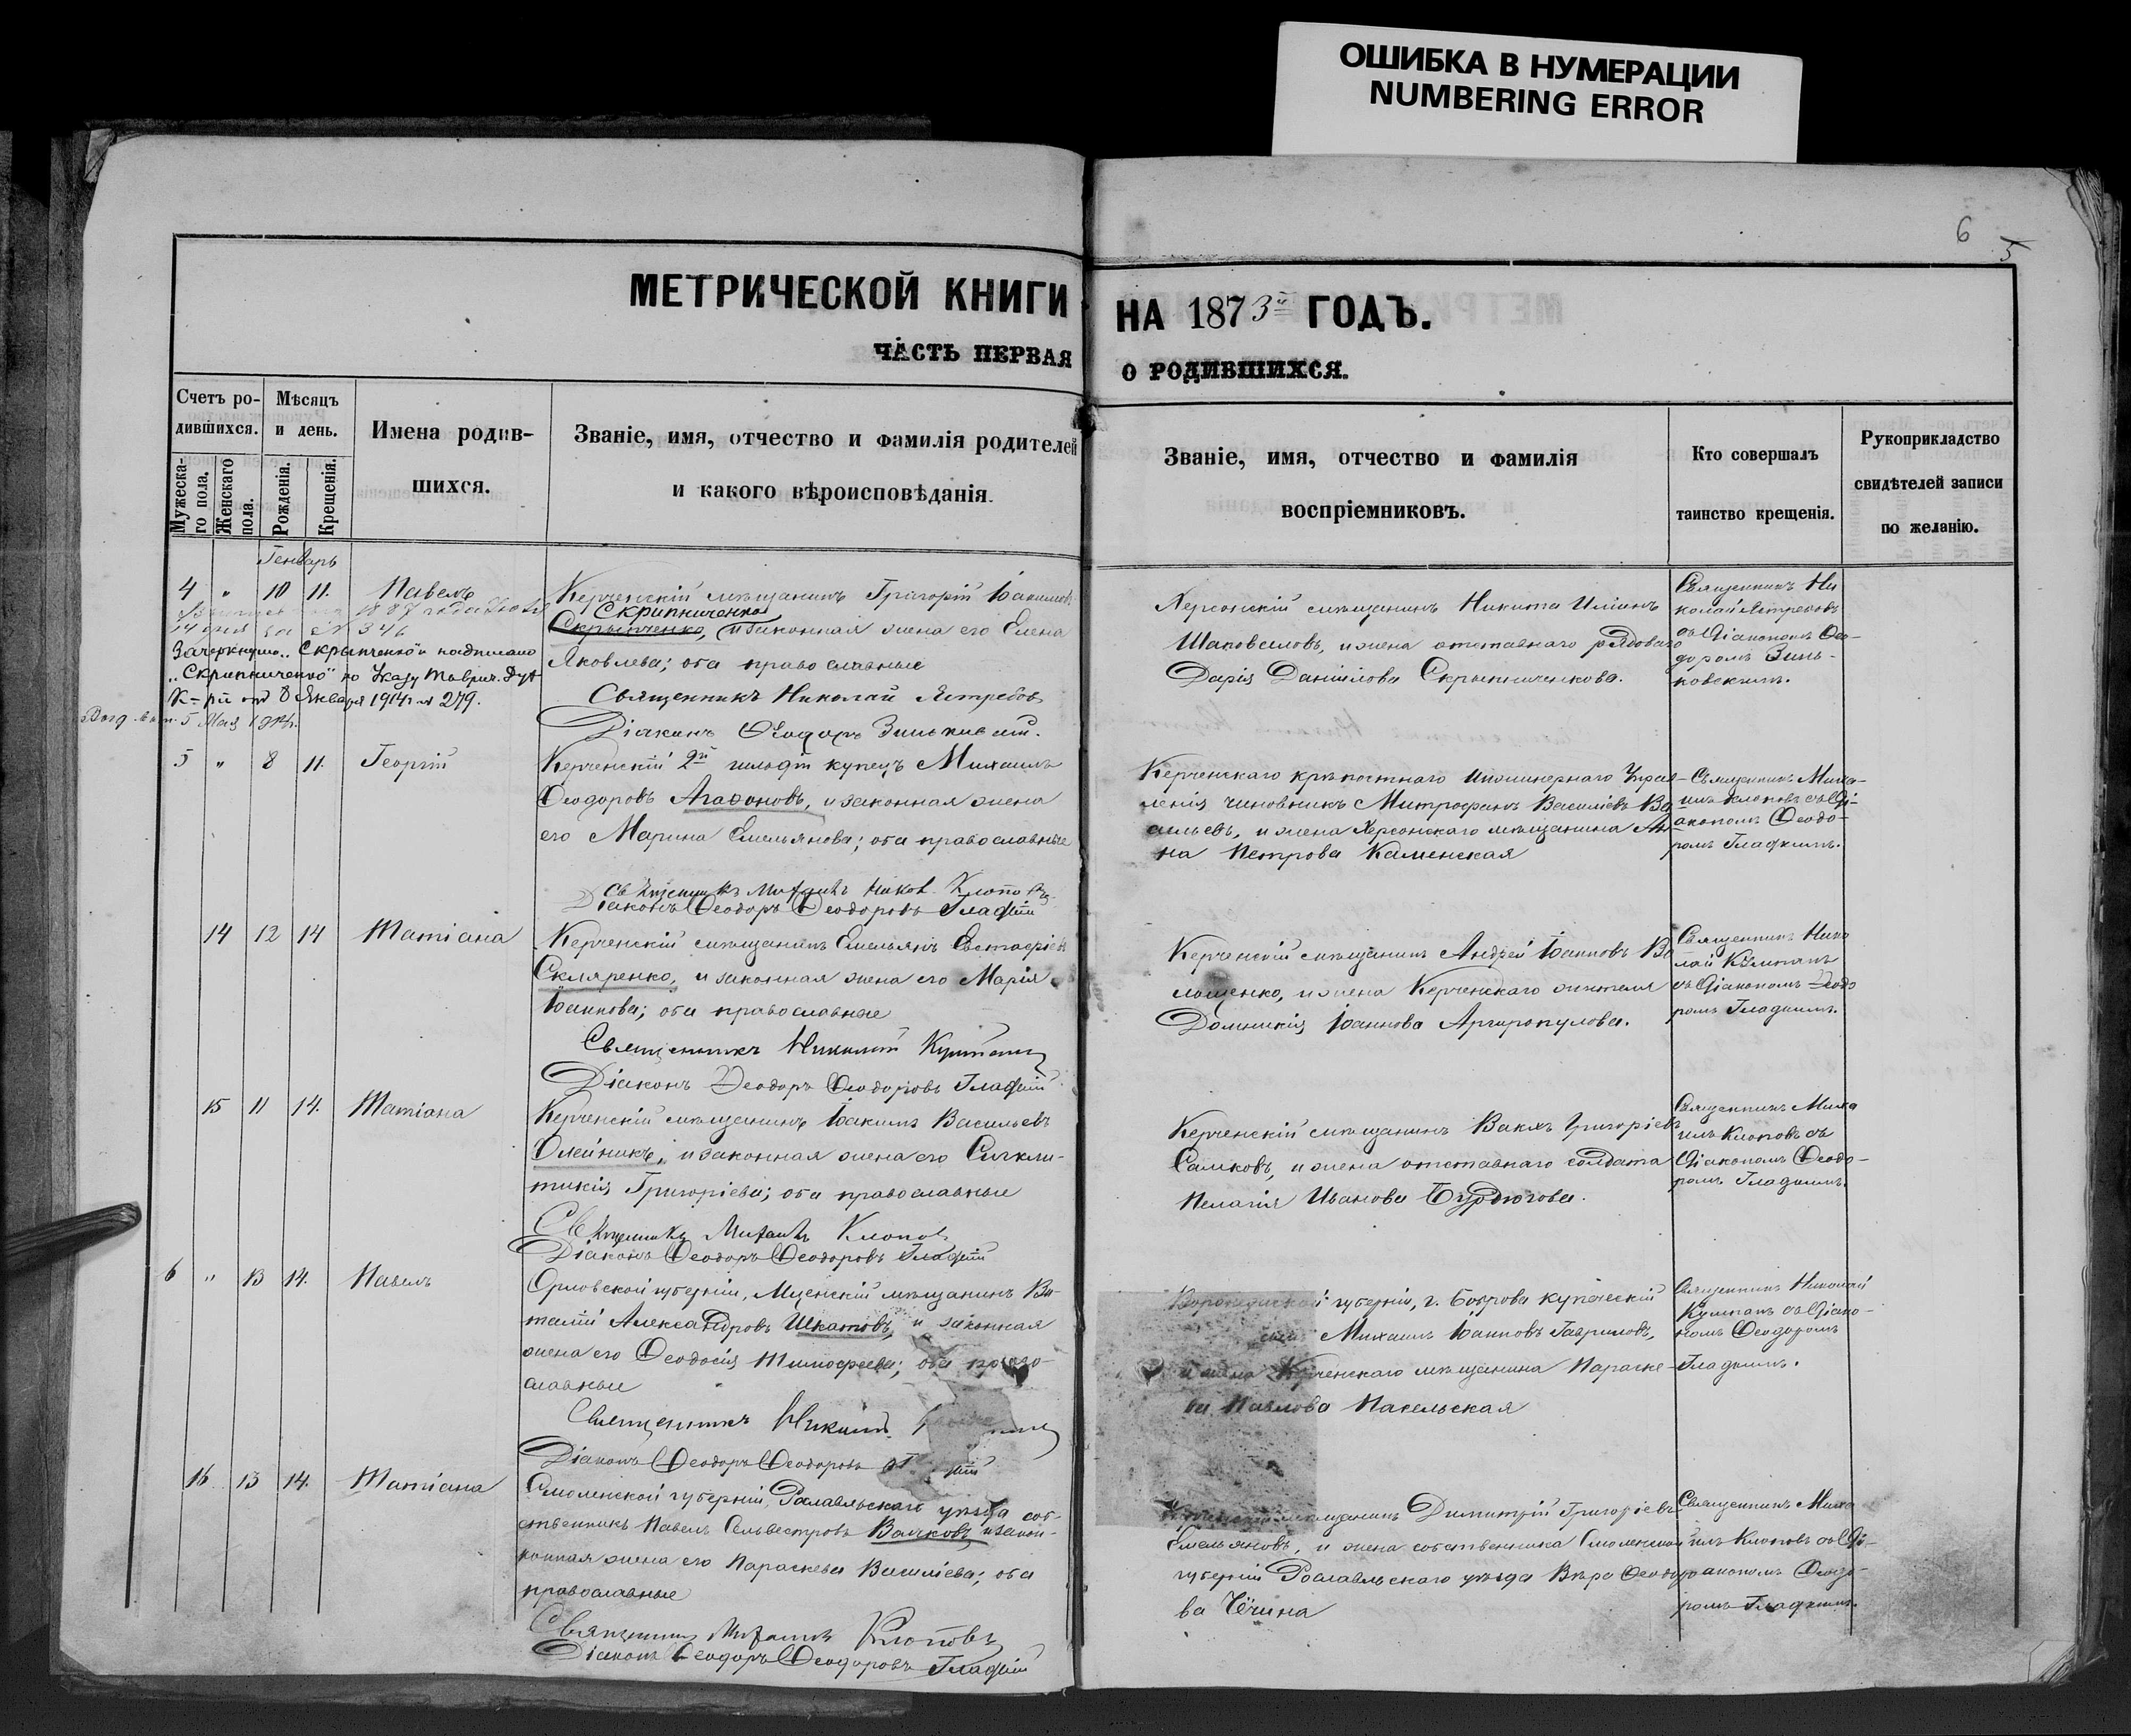 ОШИБКА В НУМЕРАЦИИ
NUMBERING ERROR
6
5
МЕТРИЧЕСКОЙ КНИГИ
ЧАСТЬ ПЕРВАЯ
НА 1873й ГОДЪ.
О РОДИВШИХСЯ.
Счетъ ро-
дившихся.
Мужеска-
го пола.
Женскаго
пола.
Мѣсяцъ
и день.
Рожденія.
Крещенія.
Имена родив-
шихся.
Званіе, имя, отчество и фамилія родителей
и какого вѣроисповѣданія.
Званіе, имя, отчество и фамилія
воспріемниковъ.
Кто совершалъ
таинство крещенія.
Рукоприкладство
свидѣтелей записи
по желанію.
Генварь
4 " 10 11. Павелъ
1887 года
14 дня за № 346
Зачеркнуто "Скрыпченко" и надписано
"Скрипниченко" по Указу Таврич. Дух
К-ріи от 8 Января 1914 г № 279.
5 Мая
Керченскій мѣщанинъ Григорій Іакимовъ
Скрипниченко
Скрыпченко, и законная жена его Елена
Яковлева; оба православные
Священникъ Николай Ястребовъ
Діаконъ Ѳеодоръ Зиньковскій.
Херсонскій мѣщанинъ Никита Иліинъ
Шаповаловъ, и жена отставнаго рядоваго
Дарія Даніилова Скрыпниченкова.
Священникъ Ни
колай Ястребовъ
съ Діакономъ Ѳео-
доромъ Зинь-
ковскимъ.
5 " 8 11. Георгій
Керченскій 2й гильдіи купецъ Михаилъ
Ѳеодоровъ Агафоновъ, и законная жена
его Марина Емельянова; оба православные
Священникъ Михаилъ Клоповъ
Діаконъ Ѳеодоръ Ѳеодоровъ Гладкій
Керченскаго крѣпостнаго Инженернаго Управ-
ленія чиновникъ Митрофанъ Василіевъ Ва
сильевъ, и жена Херсонскаго мѣщанина Ан
на Петрова Каменская
Священникъ Миха-
илъ Клоповъ съ Ді-
акономъ Ѳеодо-
ромъ Гладкимъ.
14 12 14 Татіана
Керченскій мѣщанинъ Емельянъ Евстафіевъ
Скляренко, и законная жена его Марія
Іаннова; оба православные
Священникъ Николай Купшанъ
Діаконъ Ѳеодоръ Ѳеодоровъ Гладкій
Керченскій мѣщанинъ Андрей Іанновъ Во
лощенко, и жена Керченскаго жителя
Домникія Іаннова Аргиропулова.
Священникъ Нико
лай
съ Діакономъ Ѳеодо
ромъ Гладкимъ.
15 11 14. Татіана
Керченскій мѣщанинъ Іакимъ Васильевъ
Олейникъ, и законная жена его Сигкли-
тикія Григоріева; оба православные
Священникъ Михаилъ Клоповъ
Діаконъ Ѳеодоръ Ѳеодоровъ Гладкій
Керченскій мѣщанинъ Вакхъ Григоріевъ
Самковъ, и жена отставнаго солдата
Пелагія Иванова Бурдюгова.
Священникъ Миха
илъ Клоповъ съ
Діакономъ Ѳеодо-
ромъ Гладкимъ.
6 " 13 14. Павелъ
Орловской губерніи, Мценскій мѣщанинъ Ви-
талій Александровъ Шкатовъ, и законная
жена его Ѳеодосія Тимофеева; оба право-
славные
Священникъ Николай
Діаконъ Ѳеодоръ Ѳеодоровъ
Воронежской губерніи, г. Боброва купеческій
сынъ Михаилъ Іанновъ Гавриловъ,
и жена Керченскаго мѣщанина Параске-
ва Павлова
Священникъ Николай
съ Діако-
номъ Ѳеодоромъ
Гладкимъ.
16 13 14. Татіана
Смоленской губерніи, Рославльскаго уѣзда соб-
ственникъ Павелъ Сельвестровъ Волчковъ, и закон-
ная жена его Параскева Василіева; оба
православные
Священникъ Михаилъ Клоповъ
Діаконъ Ѳеодоръ Ѳеодоровъ Гладкій
Керченскій мѣщанинъ Димитрій Григоріевъ
Емельяновъ, и жена собственника Смоленской
губерніи Рославльскаго уѣзда Вѣра Ѳеодоро
ва
Священникъ Миха
илъ Клоповъ съ Ді-
акономъ Ѳеодо-
ромъ Гладкимъ.